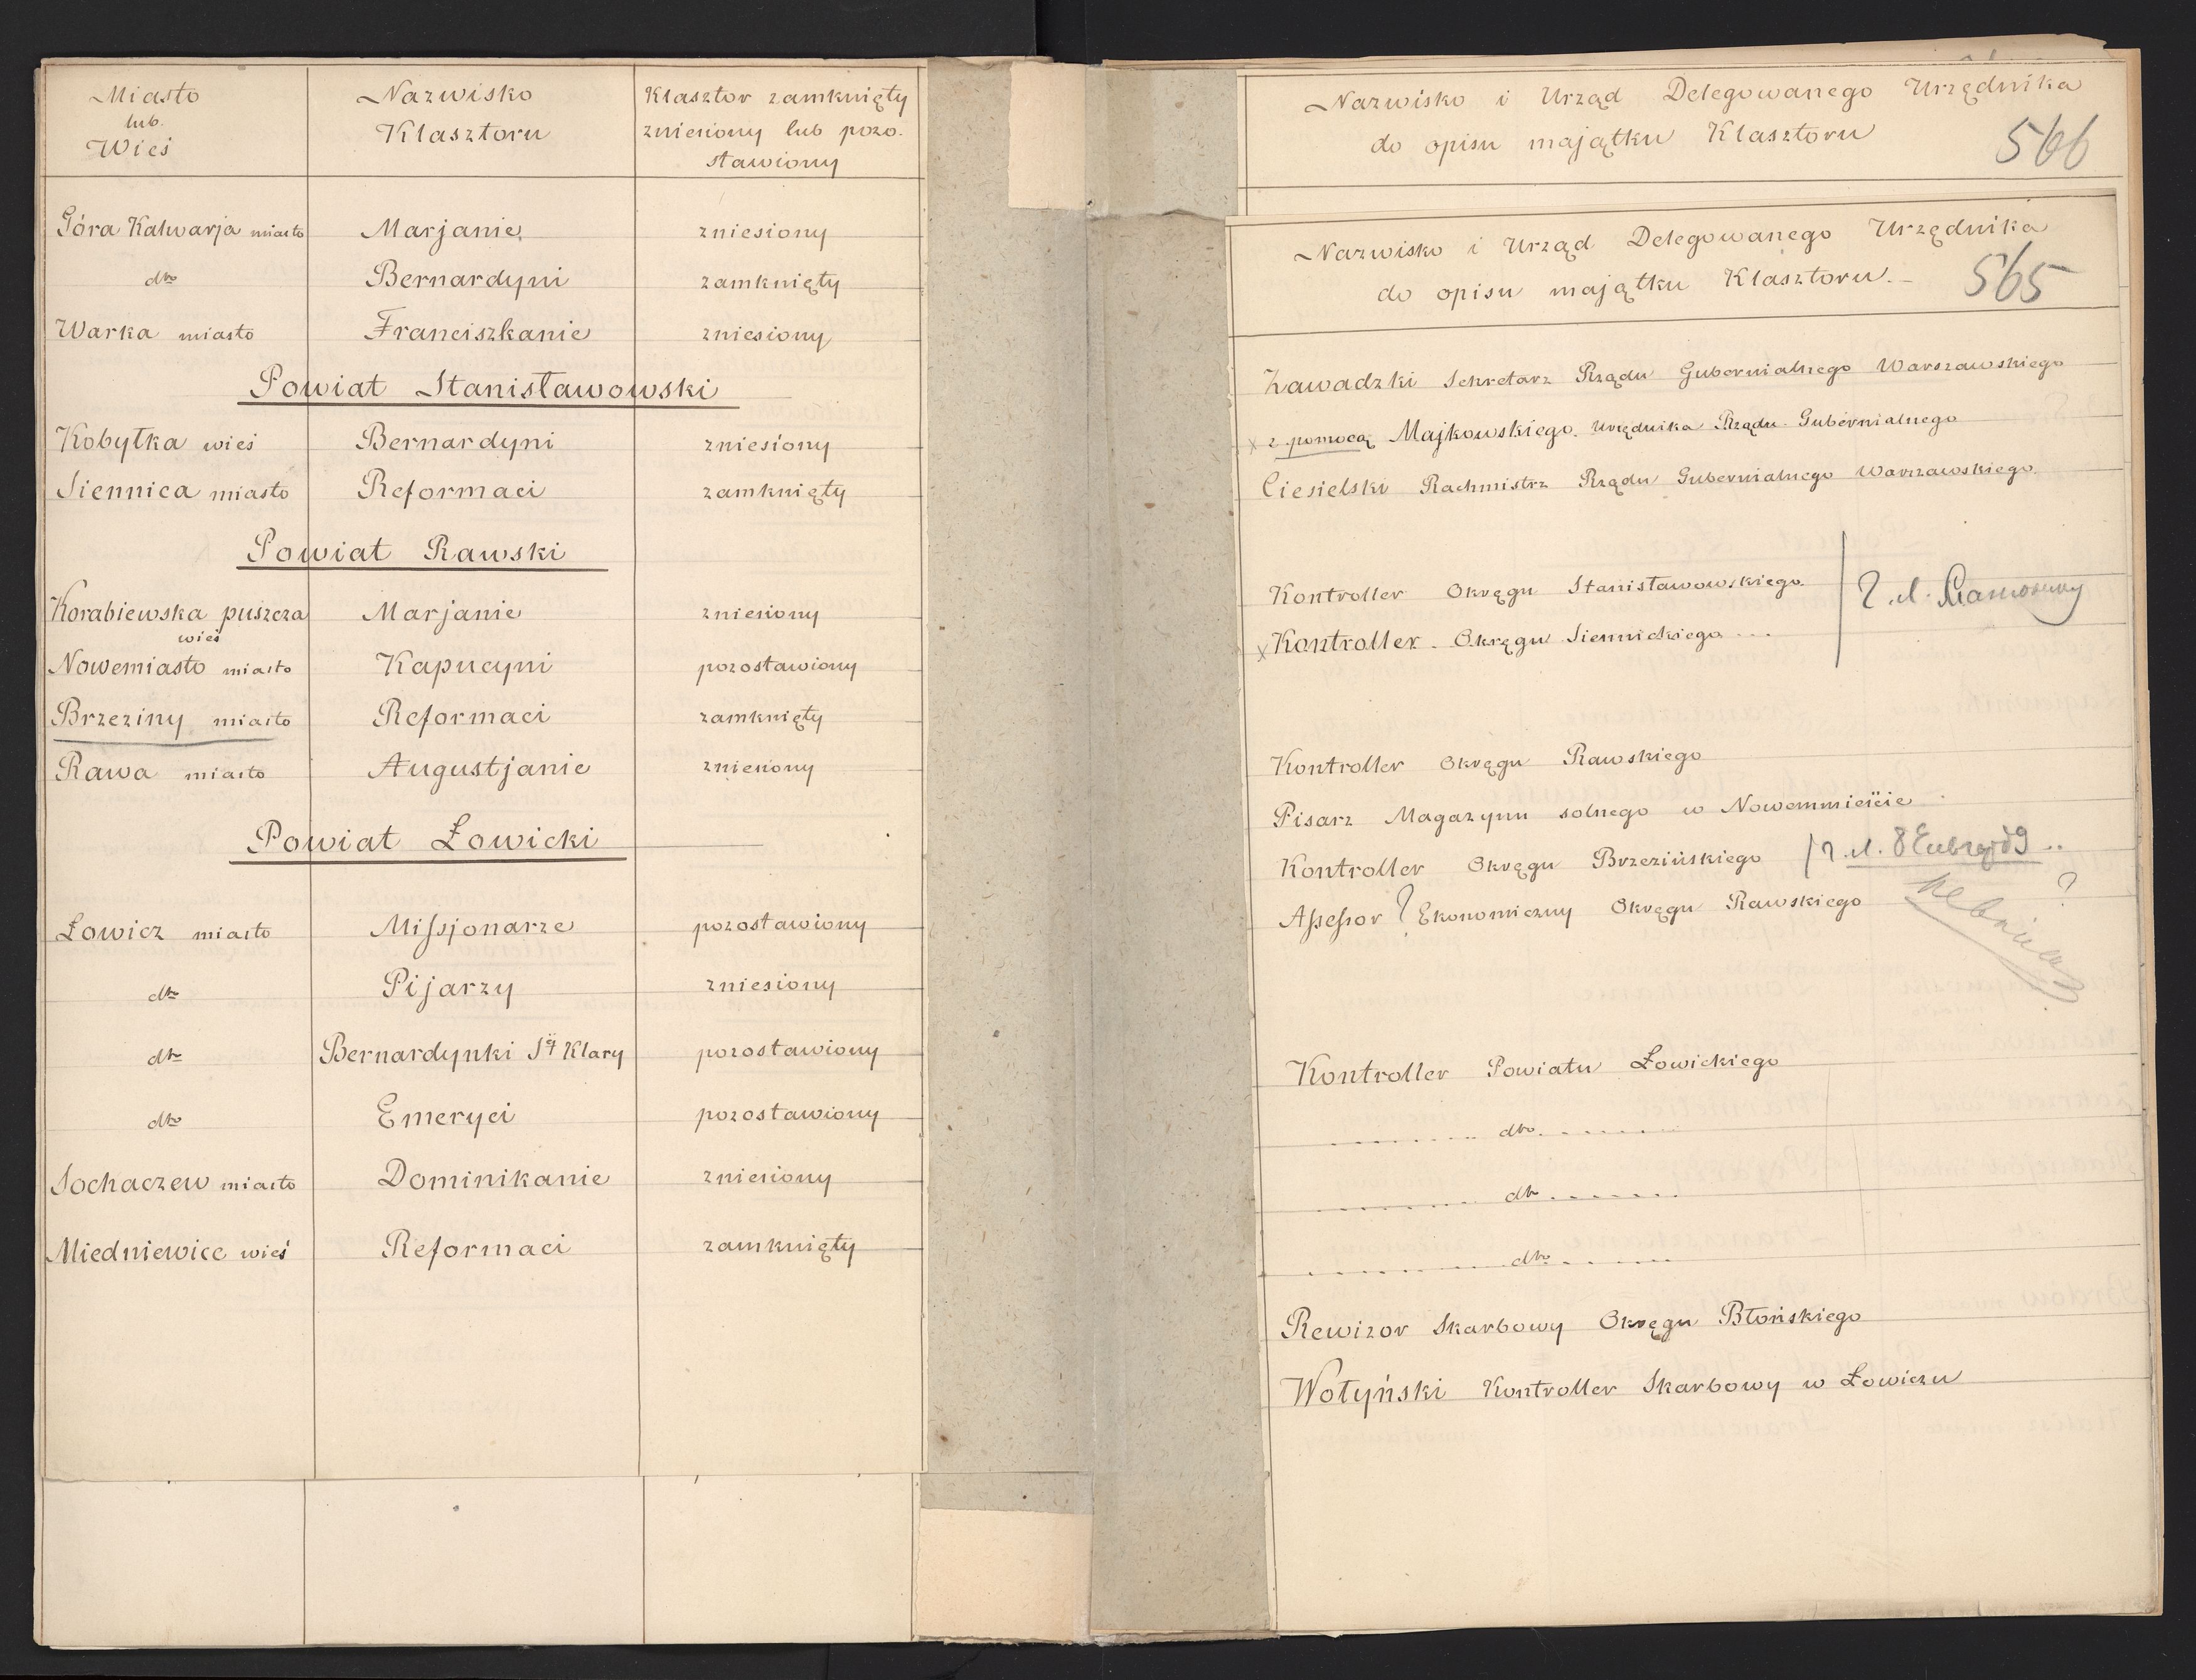 Miasto
lub.
Wieś
Nazwisko
Klasztoru
Klasztor zamknięty
zniesiony lub pozo-
stawiony
Góra Kalwarja miasto Marjanie zniesiony
dto Bernardyni zamknięty
Warka miasto Franciszkanie zniesiony
Powiat Stanisławowski
Kobyłka wieś Bernardyni zniesiony
Siennica miasto Reformaci zamknięty
Powiat Rawski
Korabiewska puszcza Marjanie zniesiony
wieś
Nowemiasto miasto Kapucyni pozostawiony
Brzeziny miasto Reformaci zamknięty
Rawa miasto Augustjanie zniesiony
Powiat Łowicki
Łowicz miasto Missjonarze pozostawiony
dto Pijarzy zniesiony
dto Bernardynki Sej Klary pozostawiony
dto Emeryci pozostawiony
Sochaczew miasto Dominikanie zniesiony
Miedniewice wieś Reformaci zamknięty
Nazwisko i Urząd Delegowanego Urzędnika
do opisu majątku Klasztoru
566
Nazwisko i Urząd Delegowanego Urzędnika
do opisu majątku Klasztoru.-
565
Zawadzki Sekretarz Rządu Gubernialnego Warszawskiego
x z pomocą Majkowskiego Urzędnika Rządu Gubernialnego
Ciesielski Rachmistrz Rządu Gubernialnego Warszawskiego
Kontroller Okręgu Stanisławowskiego
x Kontroller Okręgu Siennickiego ...
Kontroller Okręgu Rawskiego
Pisarz Magazynu solnego w Nowemmieście
Kontroller Okręgu Brzezińskiego
Assessor ? Ekonomiczny Okręgu Rawskiego ?
Kontroller Powiatu Łowickiego
dto
dto
dto
Rewizor Skarbowy Okręgu Błońskiego
Wołyński Kontroller Skarbowy w Łowiczu